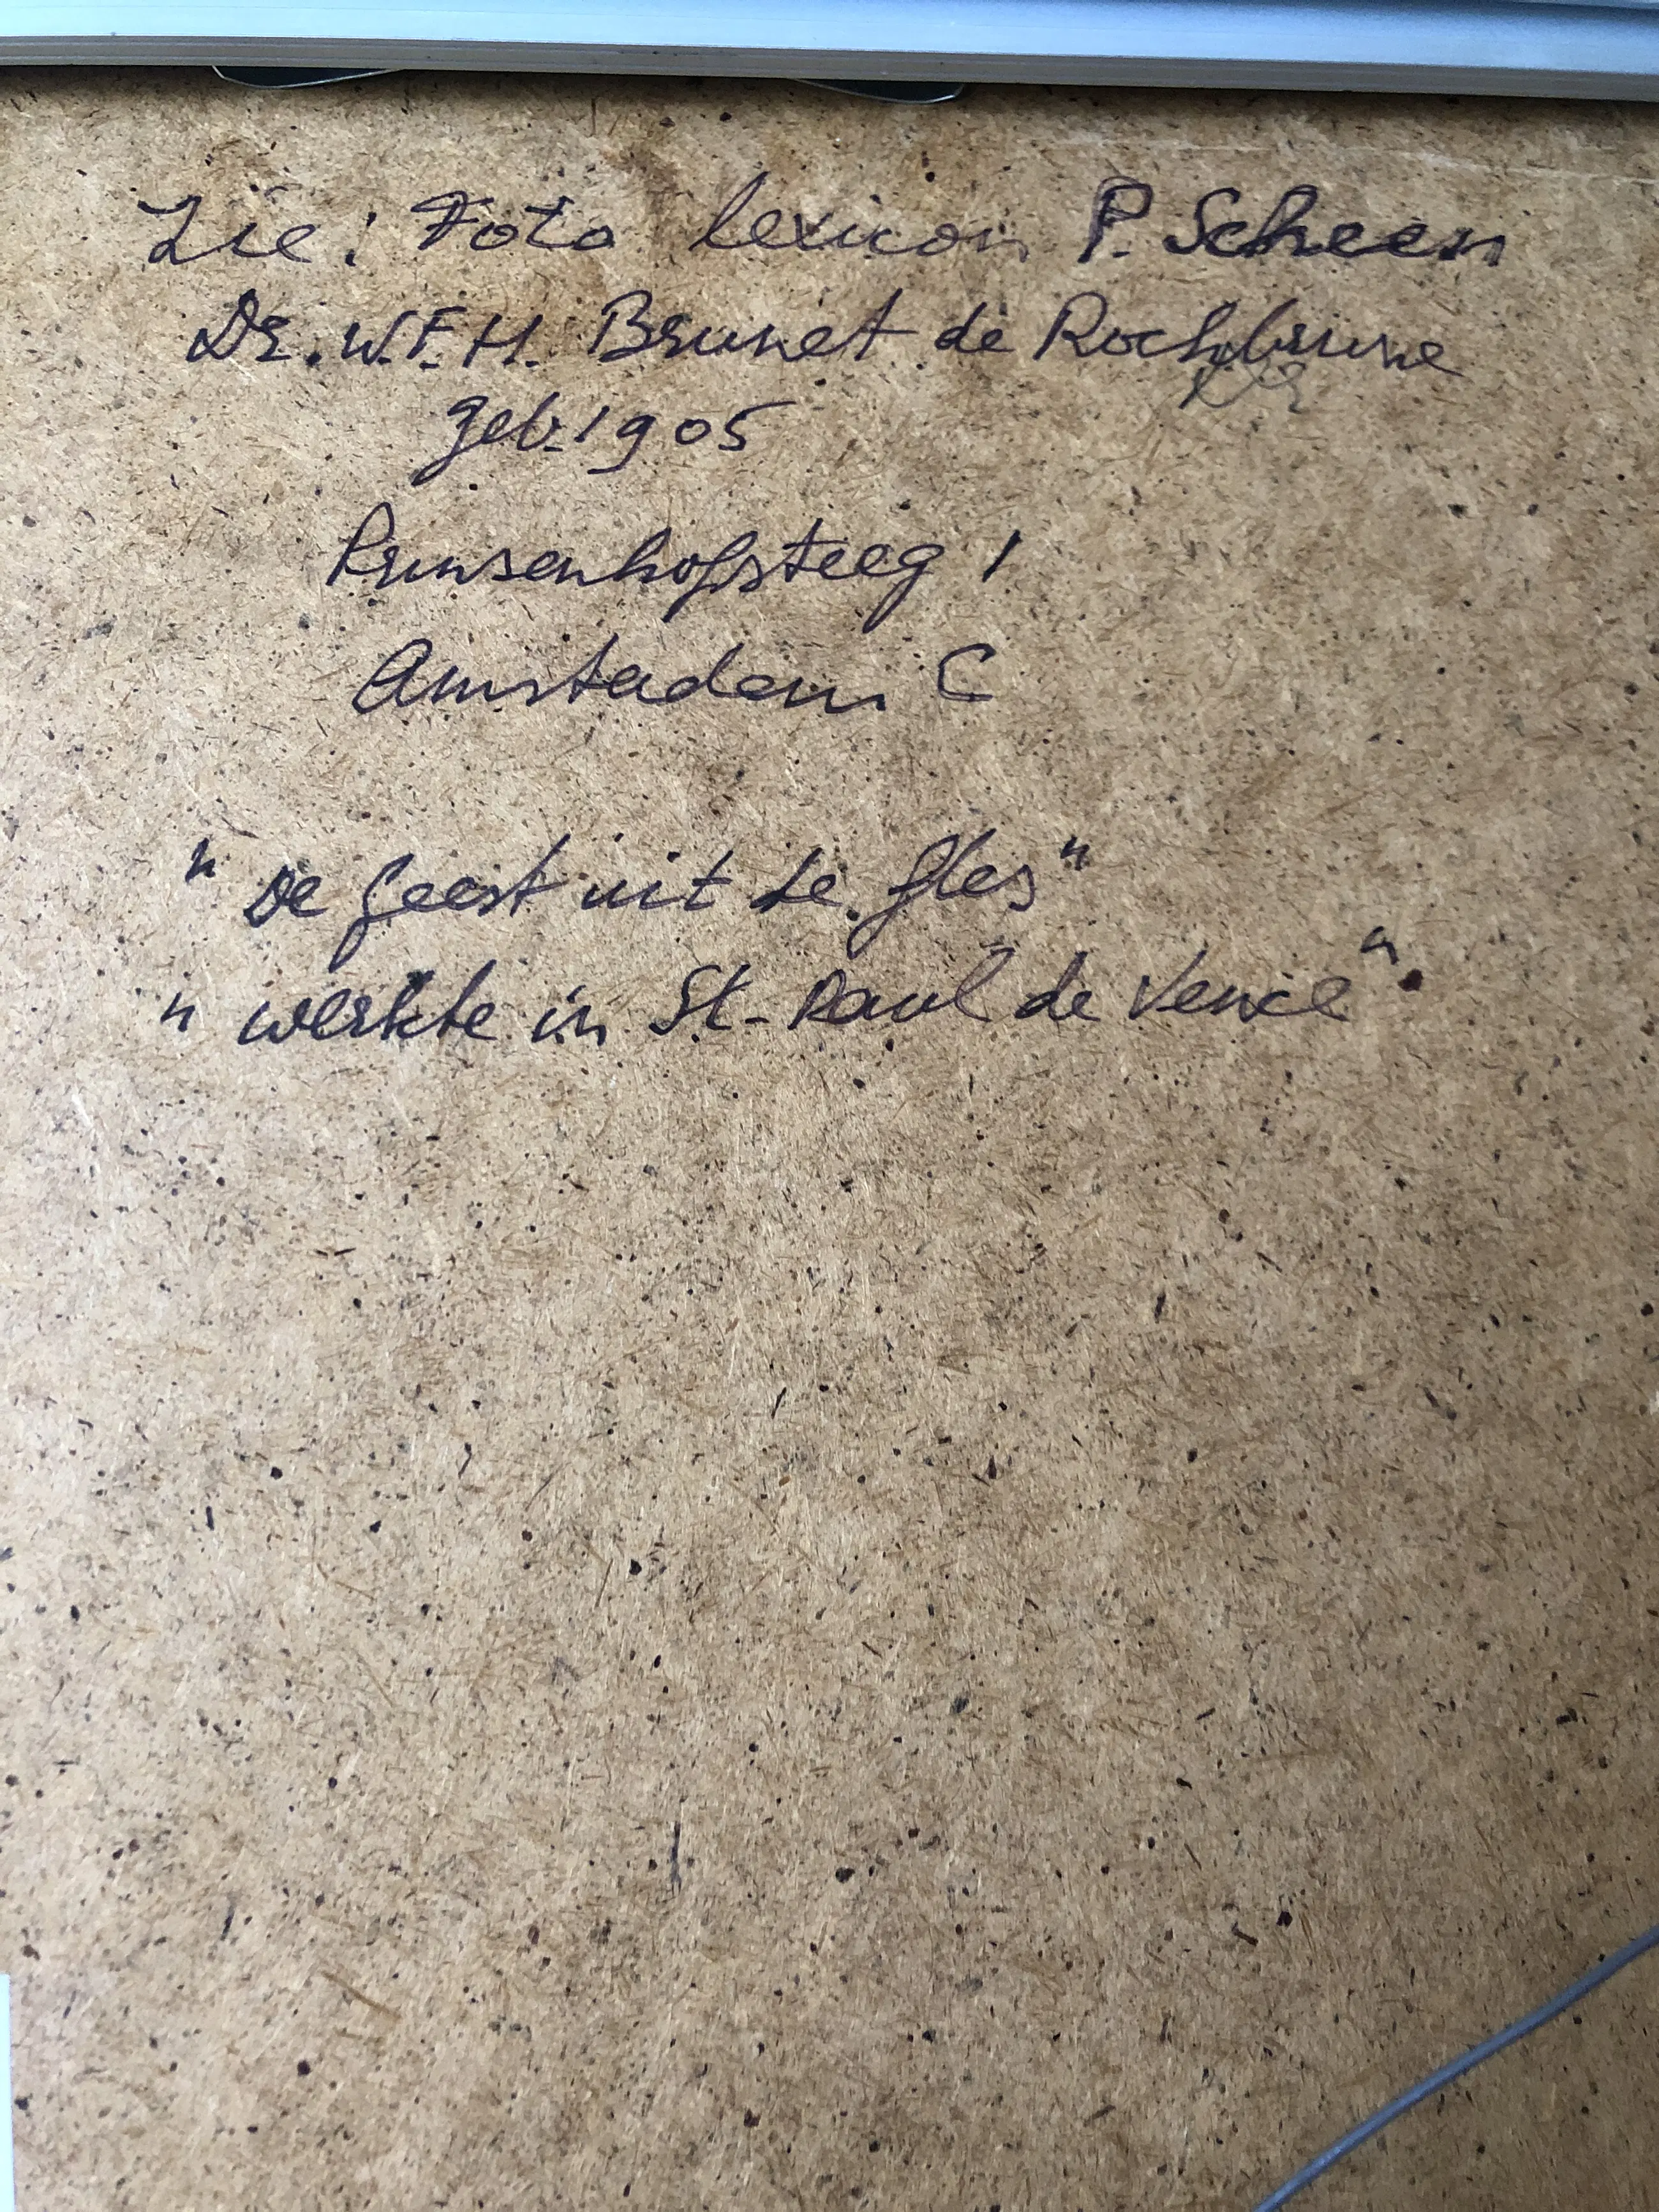 Zie: Foto lexicon P. Scheen
Dr. W.F.H. Brunet de Rochbrune
geb. 1905
Prinsenhofsteeg 1
Amstadam C
"De geest uit de fles"
"werkte in St-Paul de Vence".